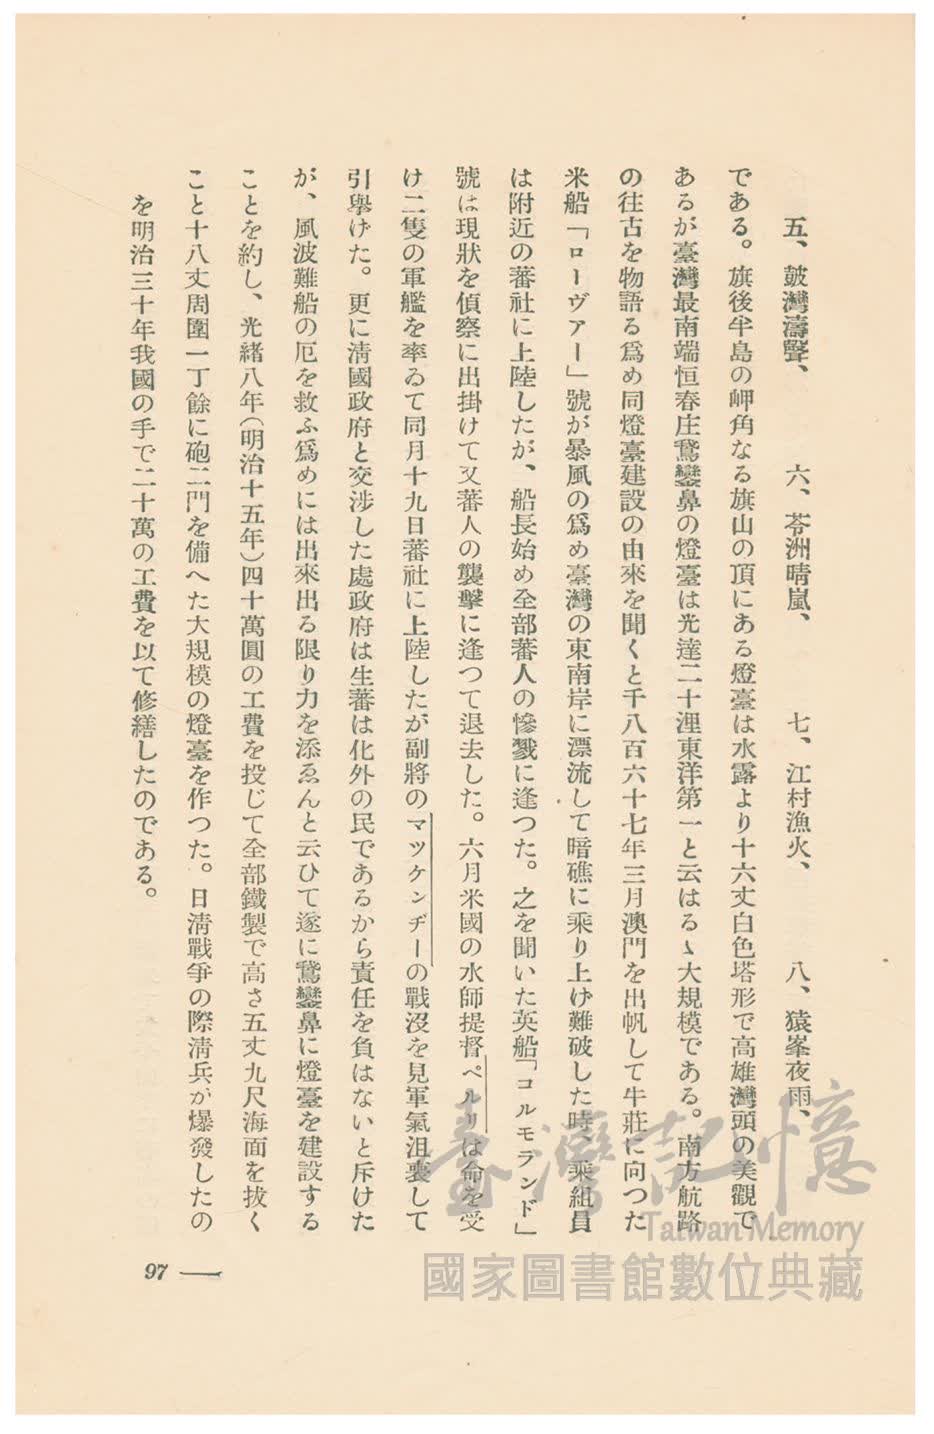 五、鼓灣濤聲、　六、苓洲晴嵐、　七、江村漁火、　八、猿峯夜雨、
である。旗後半島の岬角なる旗山の頂にある燈臺は水露より十六丈白色塔形で高雄灣頭の美觀で
あるが臺灣最南端恒春庄鵞鑾鼻の燈臺は光達二十浬東洋第一と云はるゝ大規模である。南方航路
の往古を物語る爲め同燈臺建設の由來を聞くと千八百六十七年三月澳門を出帆して牛莊に向つた
米船「ローヴァー」號が暴風の爲め臺灣の東南岸に漂流して暗礁に乘り上げ難破した時、乘組員
は附近の蕃社に上陸したが、船長始め全部蕃人の慘戮に逢つた。之を聞いた英船「コルモランド」
號は現狀を偵察に出掛けて又蕃人の襲擊に逢つて退去した。六月米國の水師提督ペルリは命を受
け二隻の軍艦を率ゐて同月十九日蕃社に上陸したが副將のマツケンヂーの戰沒を見軍氣沮喪して
引擧げた。更に淸國政府と交涉した處政府は生蕃は化外の民であるから責任を負はないと斥けた
が、風波難船の厄を救ふ爲めには出來出る限り力を添ゑんと云ひて遂に鵞鑾鼻に燈臺を建設する
ことを約し、光緖八年(明治十五年)四十萬圓の工費を投じて全部鐵製で高さ五丈九尺海面を拔く
こと十八丈周圍一丁餘に砲二門を備へた大規模の燈臺を作つた。日淸戰爭の際淸兵が爆發したの
を明治三十年我國の手で二十萬の工費を以て修繕したのである。
97
臺灣記憶
Taiwan Memory
國家圖書館數位典藏